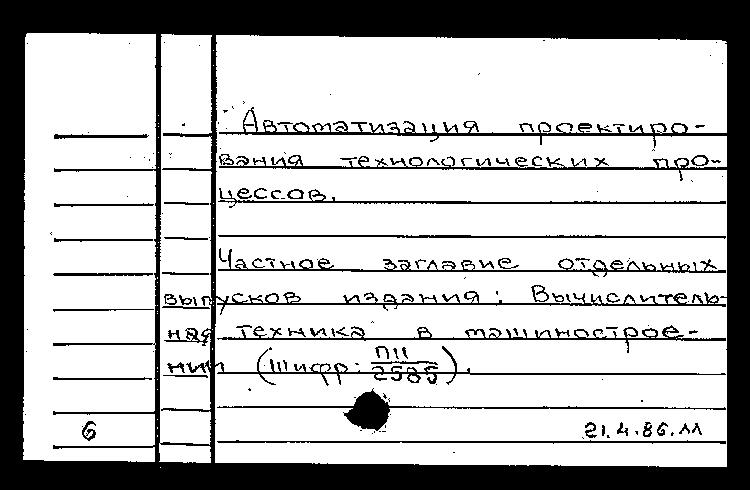 Автоматизация проектиро-
вания технологических про-
цессов.
Частное заглавие отдельных
выпусков издания: Вычислитель-
ная техника в машинострое-
нии (Шифр: ПII/2585).
6 21.4.86.лл